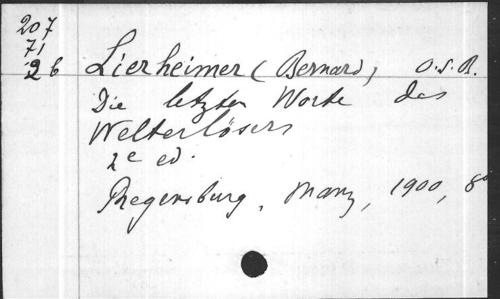 207
71
26 Lierheimer (Bernard, O.S.B.
Die letzten Worte des
Welterlösers
2e ed.
Regensburg, Manz, 1900, 8°